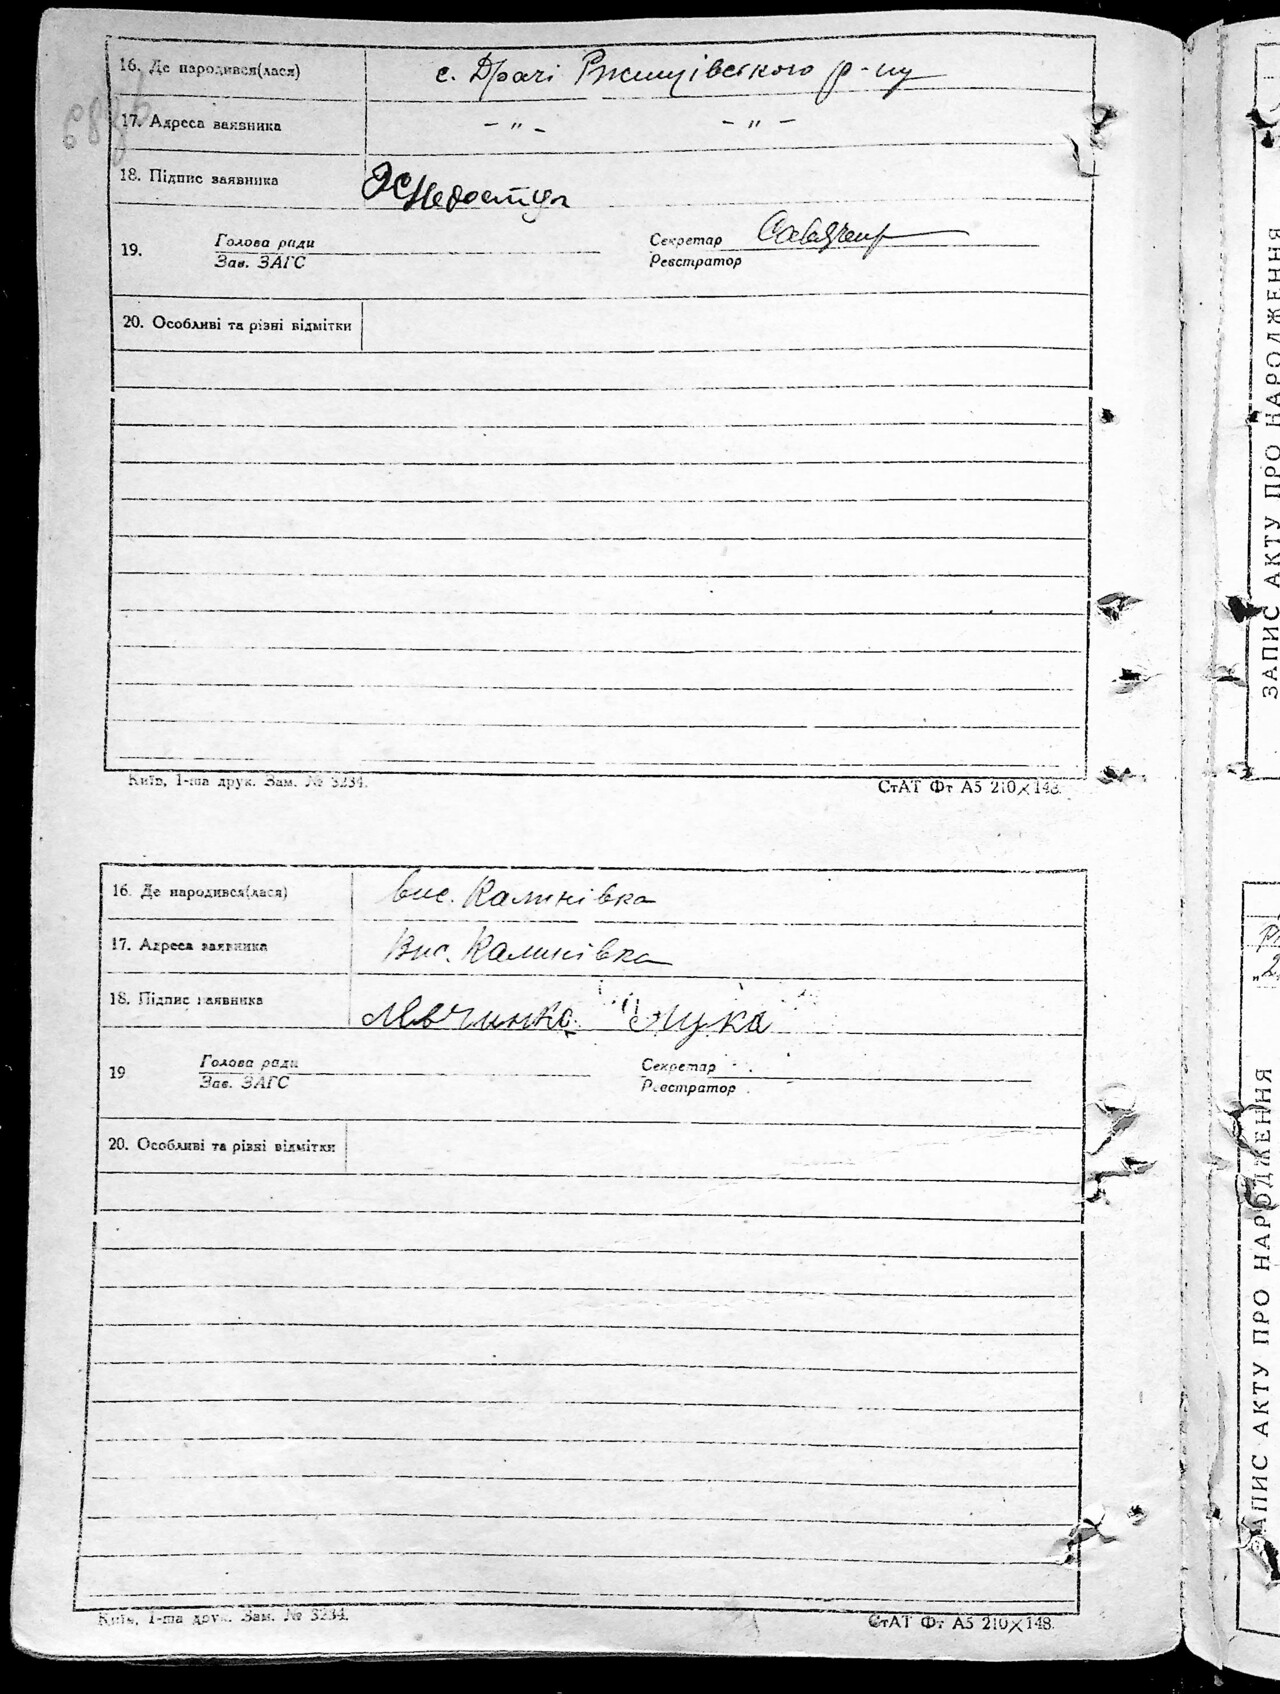 16. Де народився(лася) с. Драчі Ржищівського р-ну
17. Адреса заявника -"- -"-
18. Підпис заявника
19. Голова ради Секретар
Зав. ЗАГС Реєстратор
20. Особливі та різні відмітки
Київ, 1-ша друк. Зам. № 3234. СтАТ Фт А5 210×148.
16. Де народився(лася) вис. Калинівка
17. Адреса заявника Вис. Калинівка
18. Підпис заявника Лука
19 Голова ради Секретар
Зав. ЗАГС Реєстратор
20. Особливі та різні відмітки
Київ, 1-ша друк. Зам. № 3234. СтАТ Фт А5 210×148.
ЗАПИС АКТУ ПРО НАРОДЖЕННЯ
ЗАПИС АКТУ ПРО НАРОДЖЕННЯ